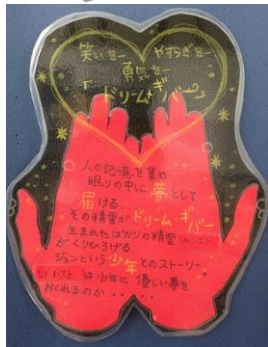 笑いをー やすらぎをー
勇気をー
「ドリーム・ギバー」
人の記憶を集め
眠りの中に夢として
届ける。
その精霊がドリーム・ギバー
生まれたばかりの精霊
がくりひろげる
ジョンという少年とのストーリー
は少年に優しい夢を
おくれるのか・・・・・